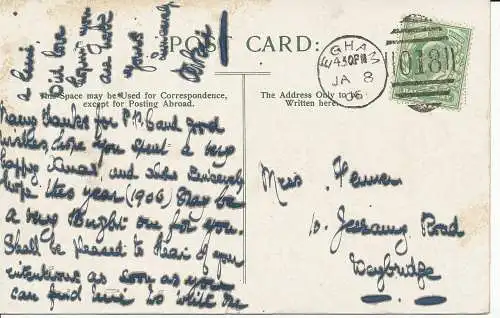 POST CARD:
This Space may be Used for Correspondence,
except for Posting Abroad.
The Address Only to be
Written here.
EGHAM
4.30PM
JA 8
06
018
Many thanks for P.P.C and good
wishes, hope you spent a very
happy Xmas, and also sincerely
hope this year (1906) may be
a very bright one for you.
Shall be pleased to hear of your
intentions as soon as you
can find time to write me
a line
our love
hoping you
are well
yours
sincerely
Miss
10.
Road
Weybridge